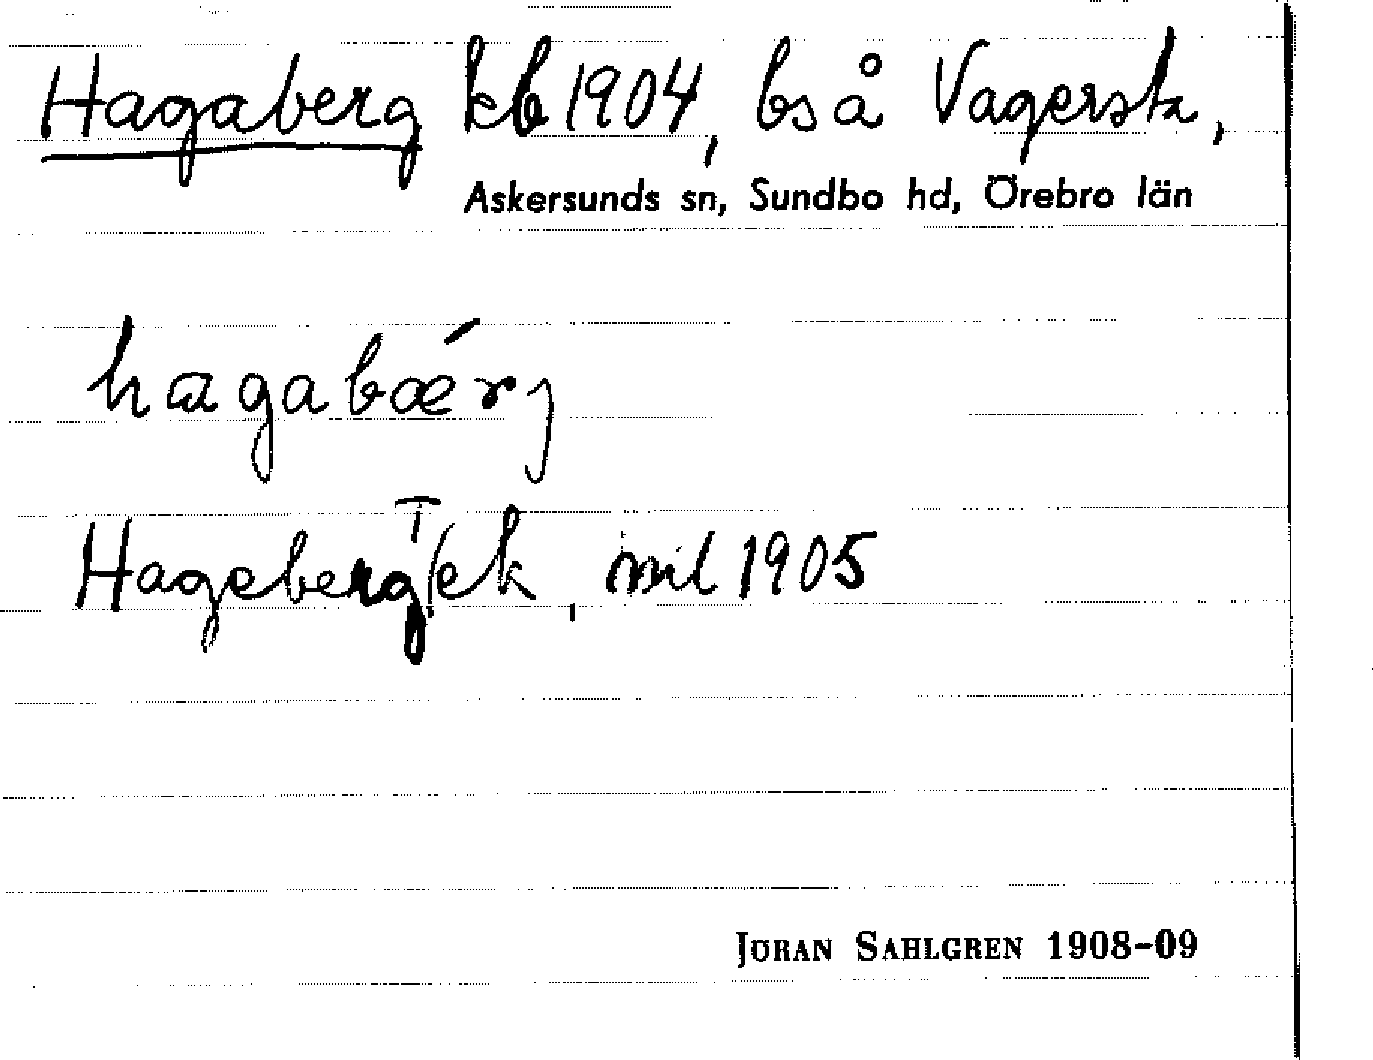 Hagaberg kb 1904, bs å Vagersta,
Askersunds sn, Sundbo hd, Örebro län
hagabǽrj
Hageberg ek, mil 1905
JÖRAN SAHLGREN 1908-09